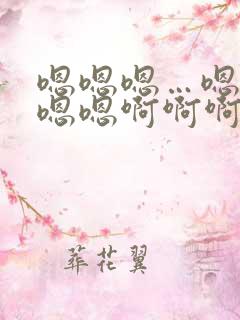 嗯嗯嗯…嗯
嗯嗯啊啊啊
葬花翼